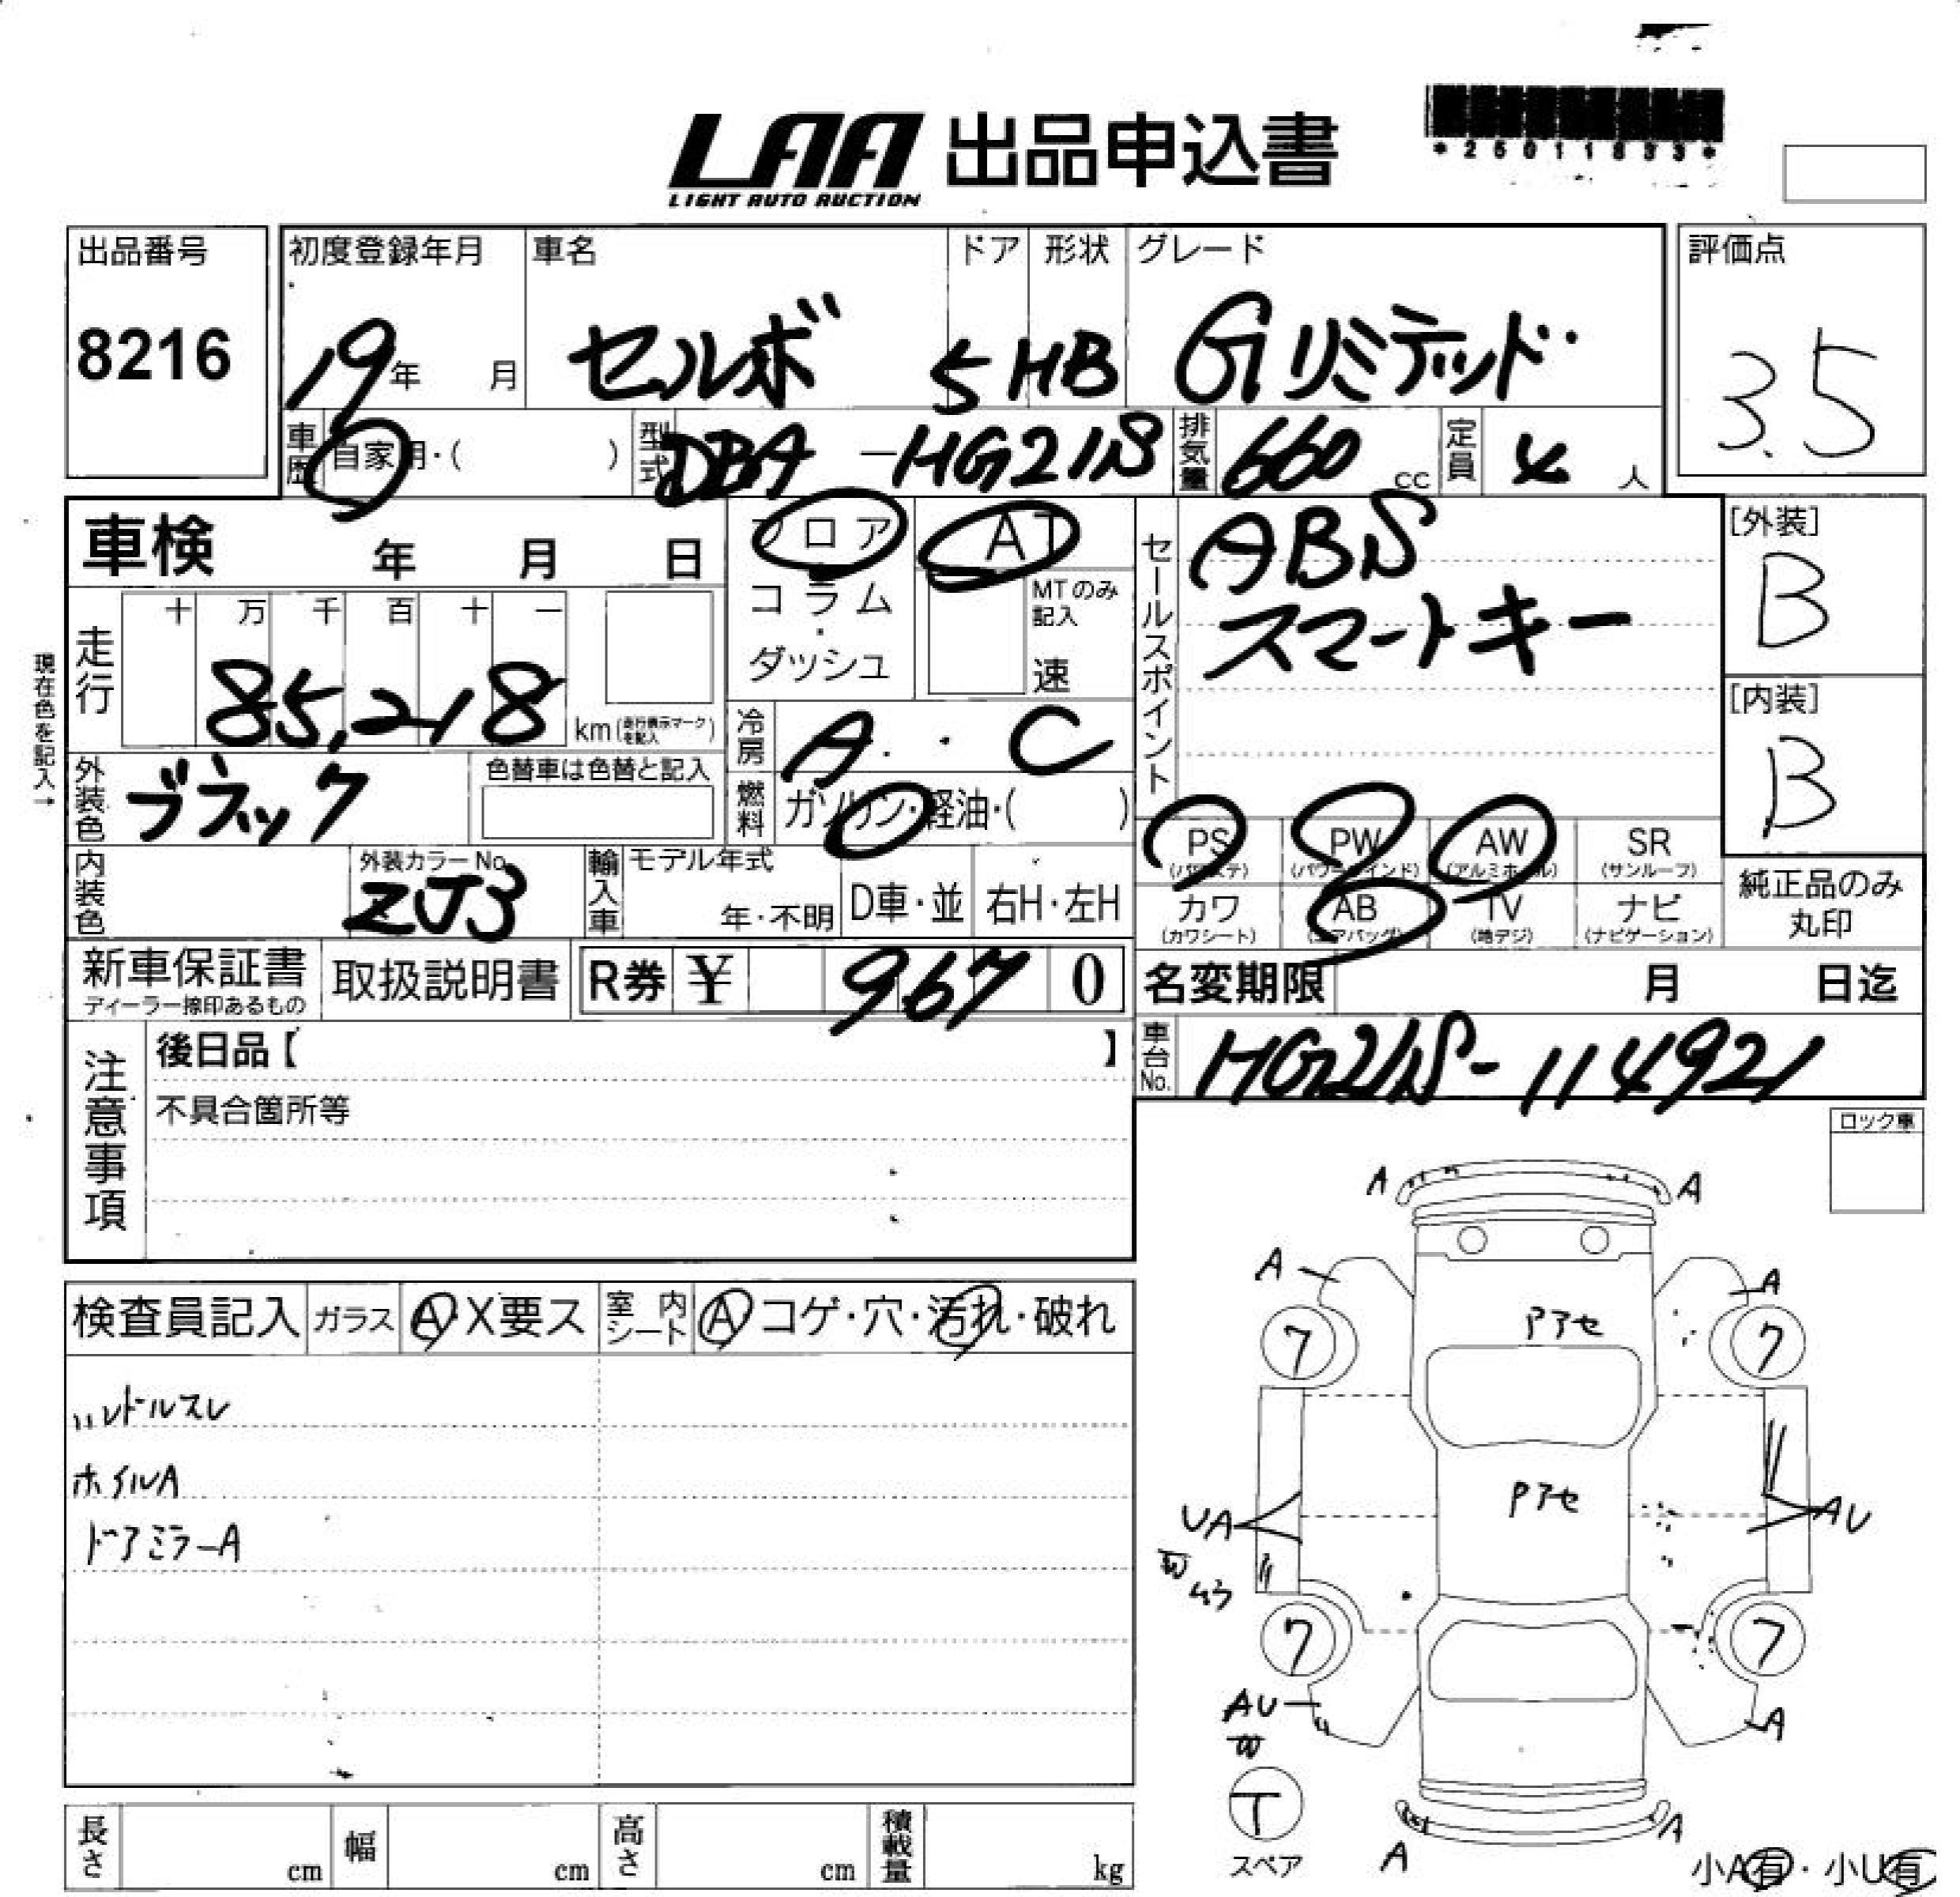 LAA 出品申込書
LIGHT AUTO AUCTION
出品番号
8216
初度登録年月
19年 月
車名
セルボ
ドア
5
形状
HB
グレード
Gリミテッド
評価点
3.5
車歴
自家用・( )
型式
DBA-HG21S
排気量
660 cc
定員
4 人
車検 年 月 日
フロア
コラム
・
ダッシュ
AT
MTのみ
記入
速
セールスポイント
ABS
スマートキー
[外装]
B
[内装]
B
現在色を記入→
走行
十 万 千 百 十 一
85,218
km(走行表示マークを記入)
冷房
A・C
外装色
ブラック
色替車は色替と記入
燃料
ガソリン・軽油・( )
PS PW AW SR
(パワステ) (パワーウインド) (アルミホイル) (サンルーフ)
カワ AB TV ナビ
(カワシート) (エアバッグ) (地デジ) (ナビゲーション)
純正品のみ
丸印
内装色
外装カラーNo.
ZJ3
輸入車
モデル年式
年・不明
D車・並
右H・左H
新車保証書
ディーラー捺印あるもの
取扱説明書
R券 ¥ 967 0
名変期限 月 日迄
車台No.
HG21S-114921
注意事項
後日品【 】
不具合箇所等
ロック車
検査員記入
ガラス
A・X要ス
室内
シート
A コゲ・穴・汚れ・破れ
ハンドルスレ
ホイルA
ドアミラーA
A A
A A
Pアセ
7 7
Pアセ
UA AU
7 7
AU A
T
スペア
A A
小A有・小U有
長さ cm
幅 cm
高さ cm
積載量 kg